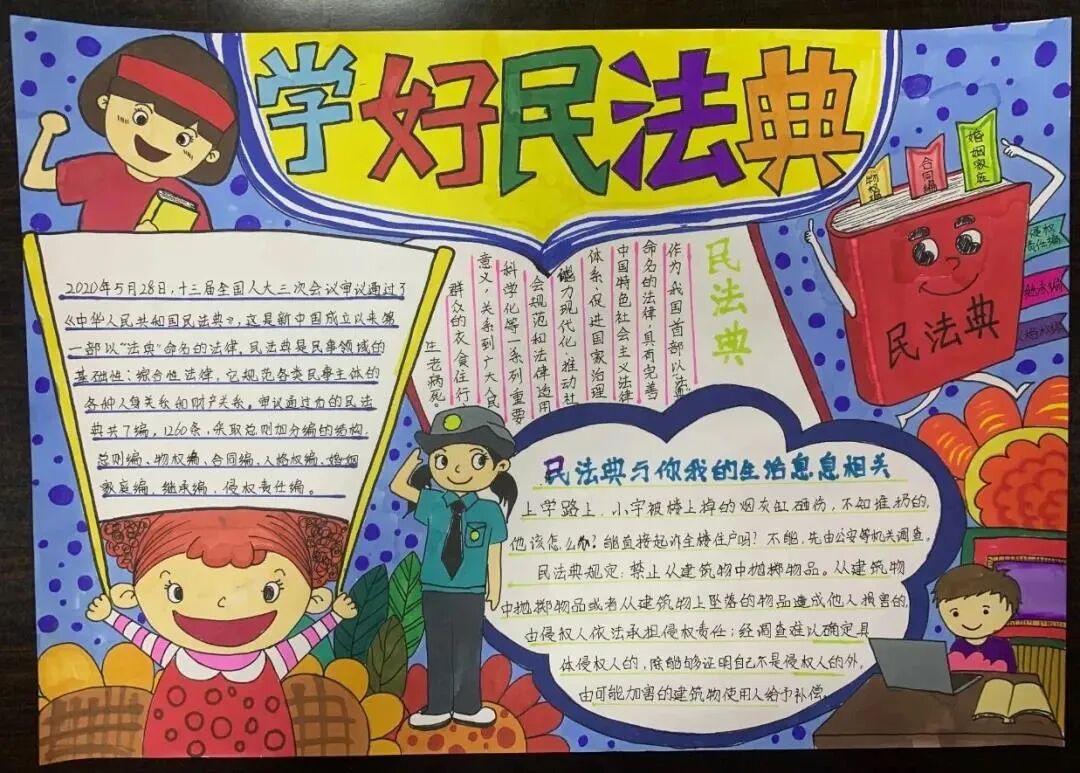 学好民法典
2020年5月28日,十三届全国人大三次会议审议通过了
《中华人民共和国民法典》,这是新中国成立以来第
一部以“法典”命名的法律。民法典是民事领域的
基础性、综合性法律,它规范各类民事主体的
各种人身关系和财产关系。审议通过后的民法
典共7编、1260条,采取总则加分编的结构,
总则编、物权编、合同编、人格权编、婚姻
家庭编、继承编、侵权责任编。
民法典
作为我国首部以法典
命名的法律,具有完善
中国特色社会主义法律
体系、促进国家治理
能力现代化、推动社
会规范和法律适用
科学化等一系列重要
意义,关系到广大人民
群众的衣食住行、
生老病死。
物权编
合同编
婚姻家庭
侵权
责任编
继承编
民法典
民法典与你我的生活息息相关
上学路上,小宇被楼上掉的烟灰缸砸伤,不知谁扔的,
他该怎么办?能直接起诉全楼住户吗?不能,先由公安等机关调查。
民法典规定:禁止从建筑物中抛掷物品。从建筑物
中抛掷物品或者从建筑物上坠落的物品造成他人损害的,
由侵权人依法承担侵权责任;经调查难以确定具
体侵权人的,除能够证明自己不是侵权人的外,
由可能加害的建筑物使用人给予补偿。